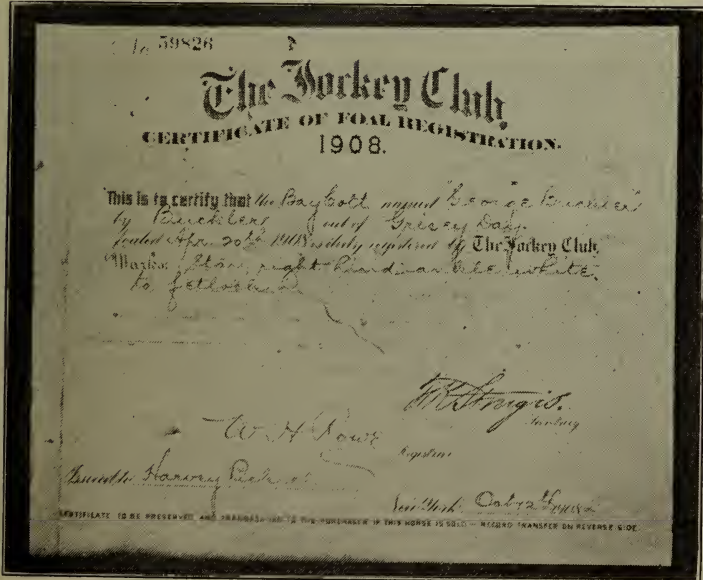 No 59826
The Jockey Club,
CERTIFICATE OF FOAL REGISTRATION.
1908.
This is to certify that the Bay Colt named "George Buckler"
by Buckler out of Grisey Day
foaled Apr. 20th 1908 is duly registered by The Jockey Club,
Marks: Star, right hind white
to fetlock
Secretary
W. H. Rowe
Registrar
Issued to Harvey
New York 1908
CERTIFICATE TO BE PRESERVED AND TRANSMITTED TO THE PURCHASER IF THIS HORSE IS SOLD — RECORD TRANSFER ON REVERSE SIDE